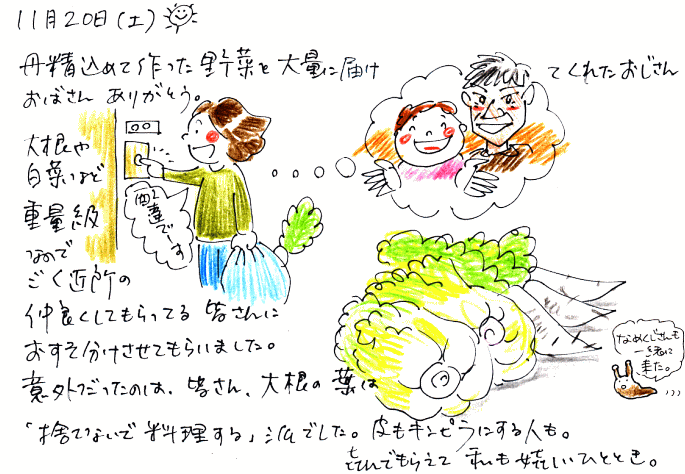 11月20日(土)
丹精込めて作った野菜を大量に届け
てくれたおじさん
おばさん ありがとう。
大根や
白菜など
重量級
なので
ごく近所の
仲良くしてもらってる皆さんに
おすそ分けさせてもらいました。
意外だったのは、皆さん、大根の葉は
「捨てないで料理する」派でした。皮もキンピラにする人も。
喜んでもらえて 私も嬉しいひととき。
配達でーす
なめくじさんも
一緒に
来た。